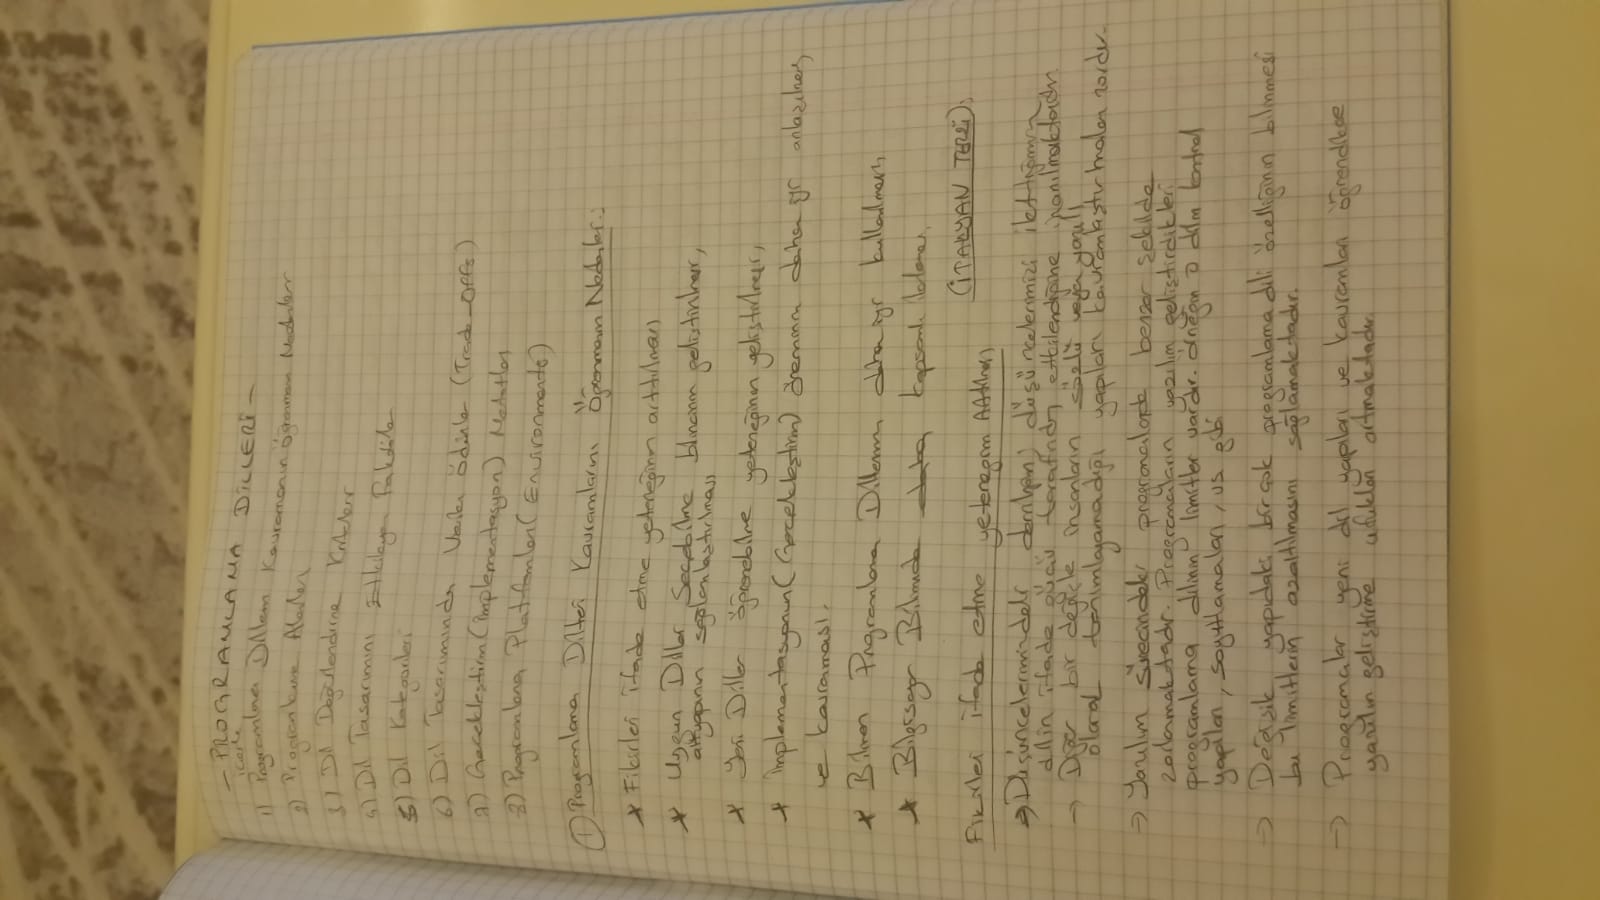 - PROGRAMLAMA DİLLERİ -
içerik
1) Programlama Dillerin Kavramanın Öğrenmenin Nedenleri
2) Programlama Alanları
3) Dil Değerlendirme Kriterler
4) Dil Tasarımını Etkileyen Faktörler
5) Dil Kategorileri
6) Dil Tasarımında Verilen Ödünler (Trade-OFFs)
7) Gerçekleştirim (İmplementasyon) Metotları
8) Programlama Platformları (Environments)
① Programlama Dilleri Kavramlarını Öğrenmenin Nedenleri:
* Fikirleri ifade etme yeteneğinin arttırılması
* Uygun Diller Seçebilme bilincinin geliştirilmesi,
altyapının sağlamlaştırılması
* Yeni Diller öğrenebilme yeteneğinin geliştirilmesi,
* implementasyonun (Gerçekleştirim) öneminin daha iyi anlaşılması,
ve kavranması.
* Bilinen Programlama Dillerinin daha iyi kullanılması,
* Bilgisayar Biliminde daha kapsamlı ilerleme,
Fikirleri ifade etme yeteneğinin Arttırılması (İTALYAN TERZİ):
→ Düşüncelerimizdeki derinliğin, düşüncelerimizi ilettiğimiz
dilin ifade gücü tarafından etkilendiğine inanılmaktadır.
→ Diğer bir deyişle insanların sözlü veya yazılı
olarak tanımlayamadığı yapıları kavramlaştırmaları zordur.
→ Yazılım sürecindeki programcılarda benzer şekilde
zorlanmaktadır. Programcıların yazılım geliştirdikleri
programlama dilinin limitler vardır. örneğin o dilin kontrol
yapıları, soyutlamaları, vs gibi
→ Değişik yapıdaki bir çok programlama dili özelliğinin bilinmesi
bu limitlerin azaltılmasını sağlamaktadır.
→ Programcılar yeni dil yapıları ve kavramları öğrendikçe
yazılım geliştirme ufukları artmaktadır.